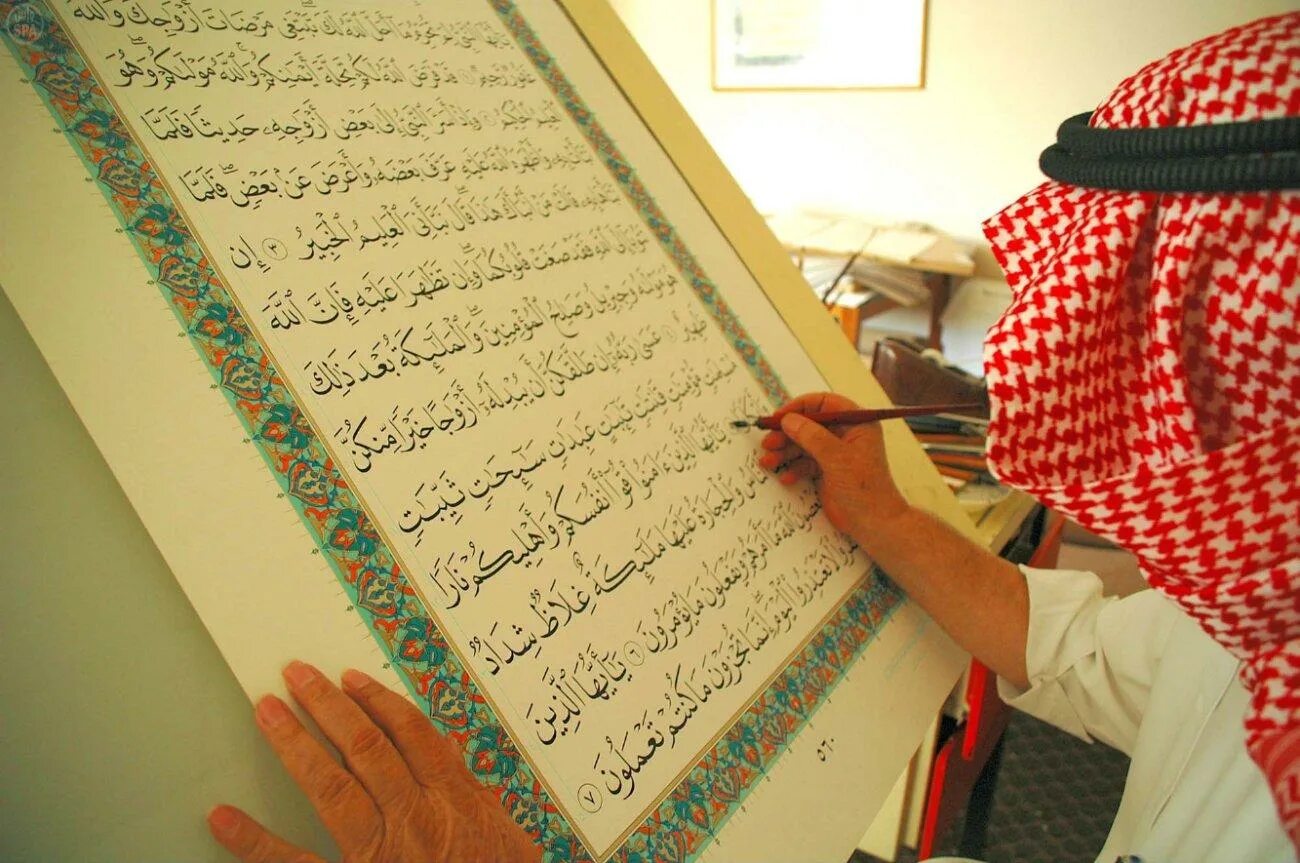 SPA
يَٰٓأَيُّهَا ٱلنَّبِيُّ لِمَ تُحَرِّمُ مَآ أَحَلَّ ٱللَّهُ لَكَۖ تَبْتَغِى مَرْضَاتَ أَزْوَٰجِكَۚ وَٱللَّهُ
غَفُورٌ رَّحِيمٌ ١ قَدْ فَرَضَ ٱللَّهُ لَكُمْ تَحِلَّةَ أَيْمَٰنِكُمْۚ وَٱللَّهُ مَوْلَىٰكُمْۖ وَهُوَ
ٱلْعَلِيمُ ٱلْحَكِيمُ ٢ وَإِذْ أَسَرَّ ٱلنَّبِيُّ إِلَىٰ بَعْضِ أَزْوَٰجِهِۦ حَدِيثًا فَلَمَّا
نَبَّأَتْ بِهِۦ وَأَظْهَرَهُ ٱللَّهُ عَلَيْهِ عَرَّفَ بَعْضَهُۥ وَأَعْرَضَ عَنۢ بَعْضٍۖ فَلَمَّا
نَبَّأَهَا بِهِۦ قَالَتْ مَنْ أَنۢبَأَكَ هَٰذَاۖ قَالَ نَبَّأَنِىَ ٱلْعَلِيمُ ٱلْخَبِيرُ ٣ إِن
تَتُوبَآ إِلَى ٱللَّهِ فَقَدْ صَغَتْ قُلُوبُكُمَاۖ وَإِن تَظَٰهَرَا عَلَيْهِ فَإِنَّ ٱللَّهَ
هُوَ مَوْلَىٰهُ وَجِبْرِيلُ وَصَٰلِحُ ٱلْمُؤْمِنِينَۖ وَٱلْمَلَٰٓئِكَةُ بَعْدَ ذَٰلِكَ
ظَهِيرٌ ٤ عَسَىٰ رَبُّهُۥٓ إِن طَلَّقَكُنَّ أَن يُبْدِلَهُۥٓ أَزْوَٰجًا خَيْرًا مِّنكُنَّ
مُسْلِمَٰتٍ مُّؤْمِنَٰتٍ قَٰنِتَٰتٍ تَٰٓئِبَٰتٍ عَٰبِدَٰتٍ سَٰٓئِحَٰتٍ ثَيِّبَٰتٍ
يَٰٓأَيُّهَا ٱلَّذِينَ ءَامَنُوا۟ قُوٓا۟ أَنفُسَكُمْ وَأَهْلِيكُمْ نَارًا
ٱلنَّاسُ وَٱلْحِجَارَةُ عَلَيْهَا مَلَٰٓئِكَةٌ غِلَاظٌ شِدَادٌ
يَعْصُونَ ٱللَّهَ مَآ أَمَرَهُمْ وَيَفْعَلُونَ مَا يُؤْمَرُونَ ٦ يَٰٓأَيُّهَا ٱلَّذِينَ
لَا تَعْتَذِرُوا۟ ٱلْيَوْمَۖ إِنَّمَا تُجْزَوْنَ مَا كُنتُمْ تَعْمَلُونَ ٧
٥٦٠